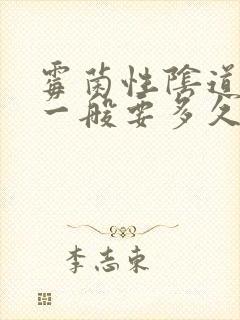 霉菌性陰道
一般要多久
李志東